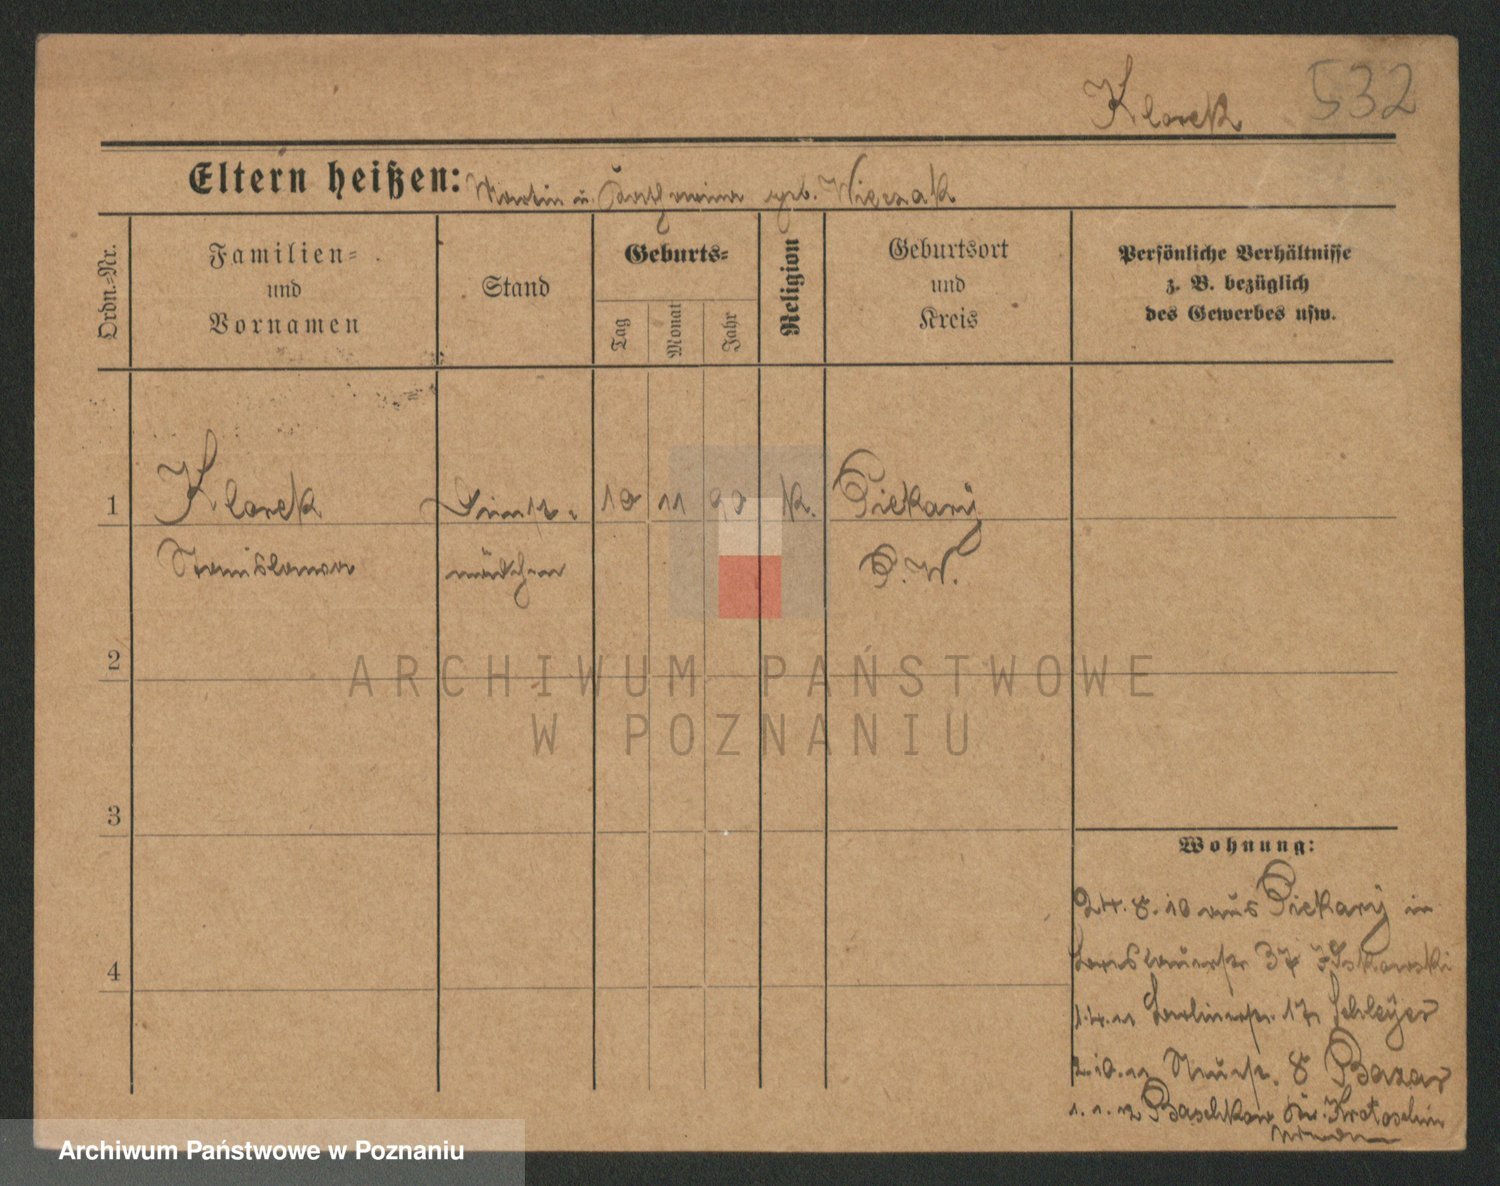 Klorek 532
Eltern heißen: Martin u. Katharina geb. Wieczak
Ordn.-Nr.
Familien-
und
Vornamen
Stand
Geburts-
Tag
Monat
Jahr
Religion
Geburtsort
und
Kreis
Persönliche Verhältnisse
z. B. bezüglich
des Gewerbes usw.
1 Klorek Dienst- 10 11 90 k. Piekary
Stanislawa mädchen P. W.
2
3
4
Wohnung:
24. 8. 10 aus Piekary in
Breslauerstr. 37
1.4.11 Berlinerstr. 17 Schleyer
2.10.11 Neuestr. 8 Bazar
1.1.12 Baschkow Kr. Krotoschin
ARCHIWUM PAŃSTWOWE
W POZNANIU
Archiwum Państwowe w Poznaniu